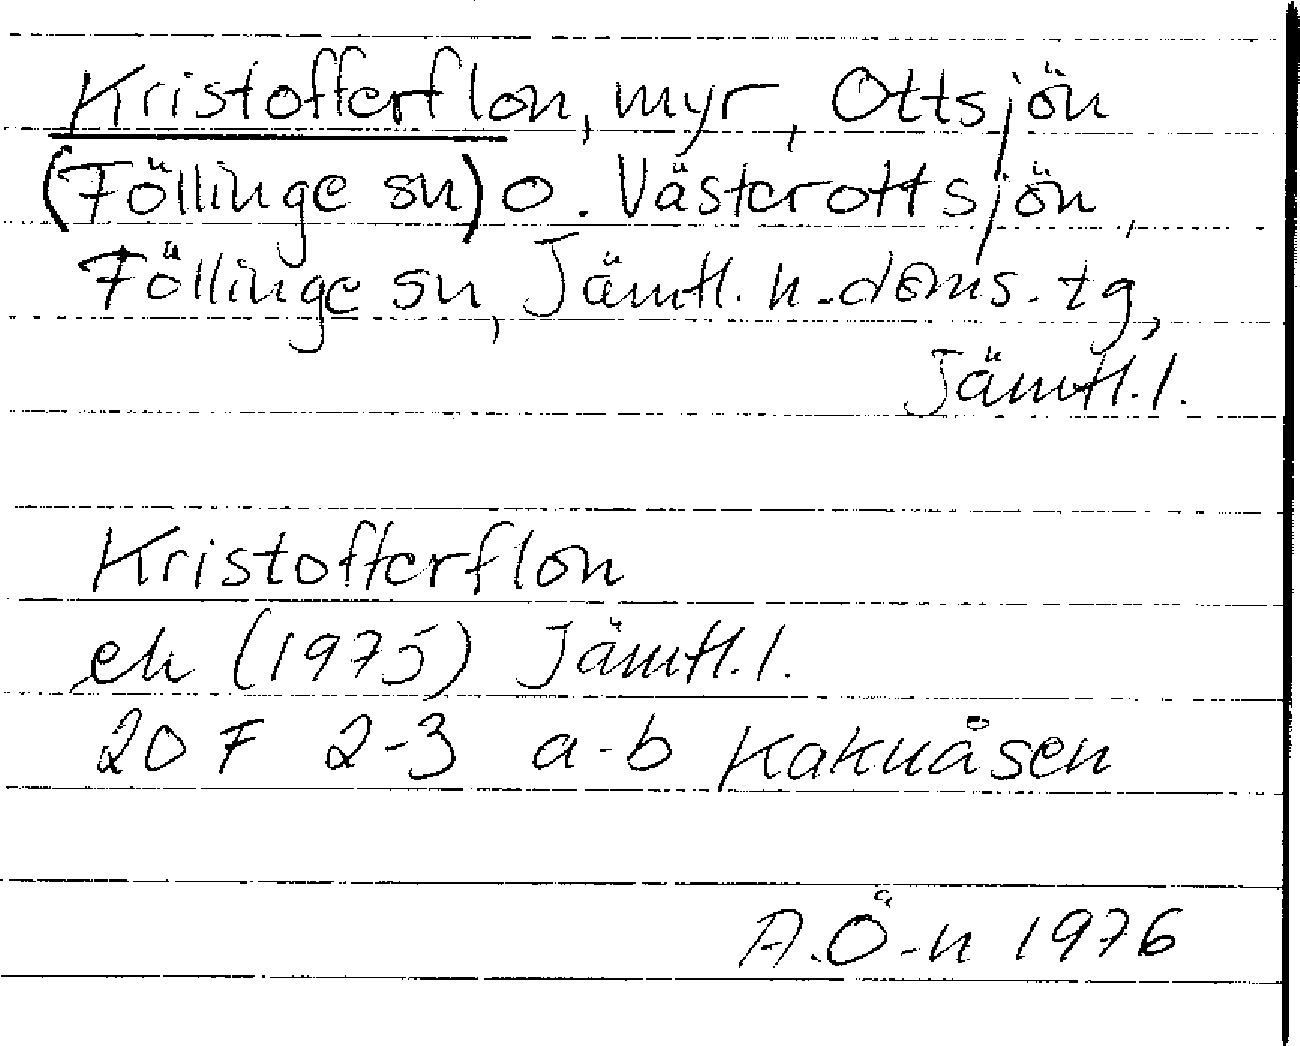 Kristofferflon, myr, Ottsjön
(Föllinge sn) o. Västerottsjön,
Föllinge sn, Jämtl. n. doms. tg,
Jämtl. l.
Kristofferflon
ek (1975) Jämtl. l.
20 F 2-3 a-b Kakuåsen
A.Ö-n 1976